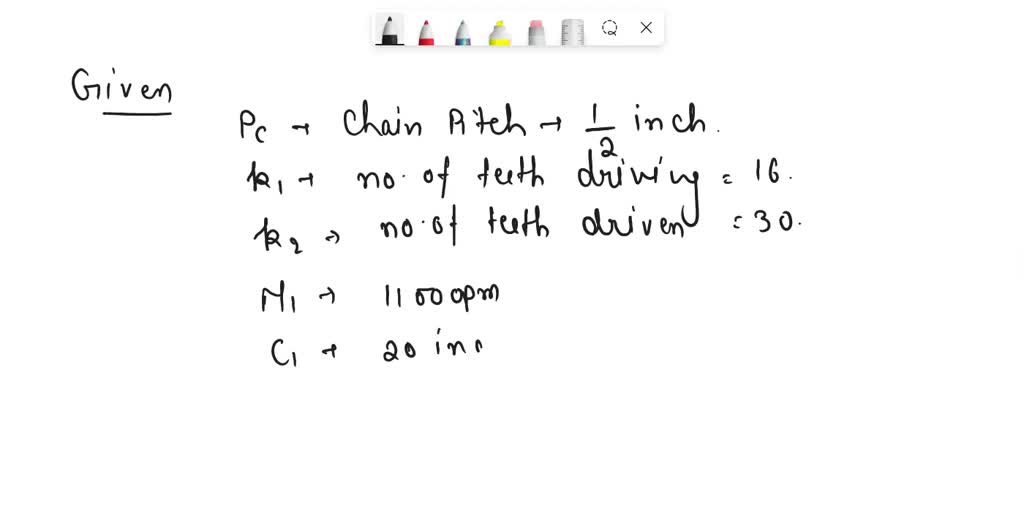 Given
Pc → Chain Pitch → 1/2 inch.
k1 → no. of teeth driving = 16.
k2 → no. of teeth driven = 30.
N1 → 1100 rpm
C1 → 20 in